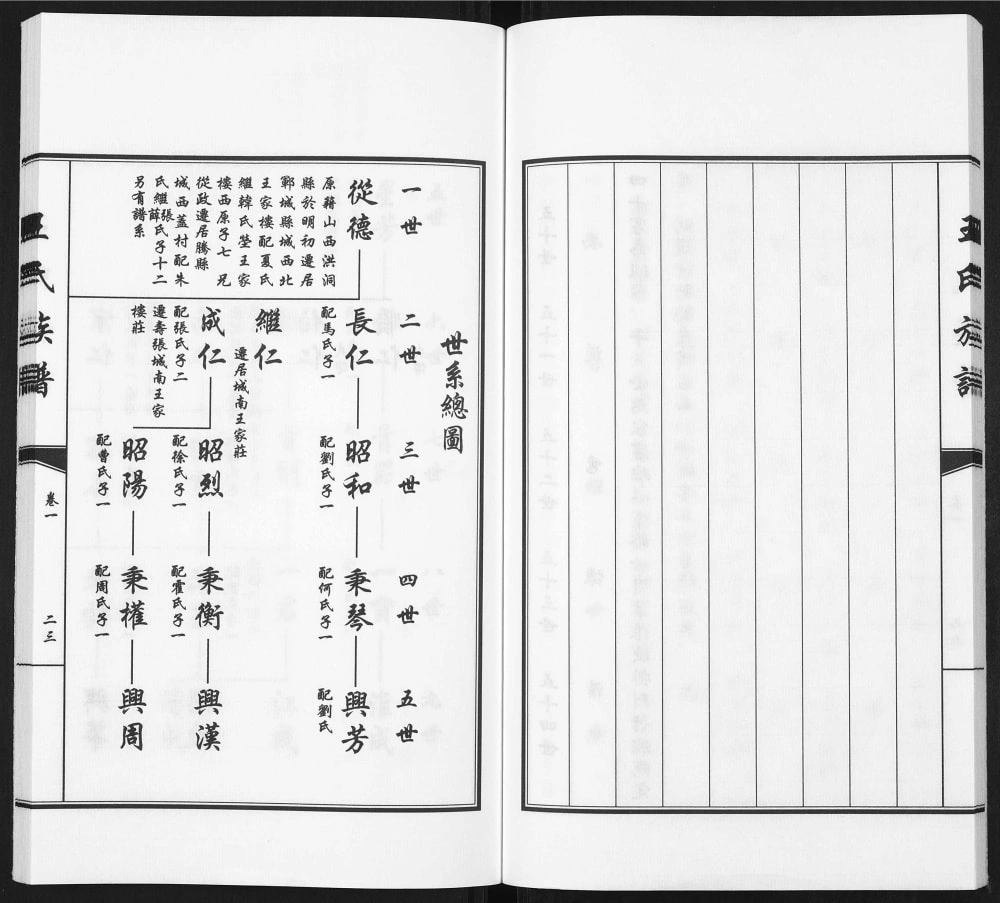 王氏族譜
世系總圖
一世
二世
三世
四世
五世
從德
原籍山西洪洞
縣於明初遷居
鄆城縣城西北
王家樓配夏氏
繼韓氏塋王家
樓西原子七 兄
從政遷居騰縣
城西蓋村配朱
氏繼張
薛氏子十二
另有譜系
長仁
配馬氏子一
昭和
配劉氏子一
秉琴
配何氏子一
興芳
配劉氏
繼仁
遷居城南王家莊
成仁
配張氏子二
遷壽張城南王家
樓莊
昭烈
配徐氏子一
秉衡
配霍氏子一
興漢
昭陽
配曹氏子一
秉權
配周氏子一
興周
王氏族譜
卷一
二三